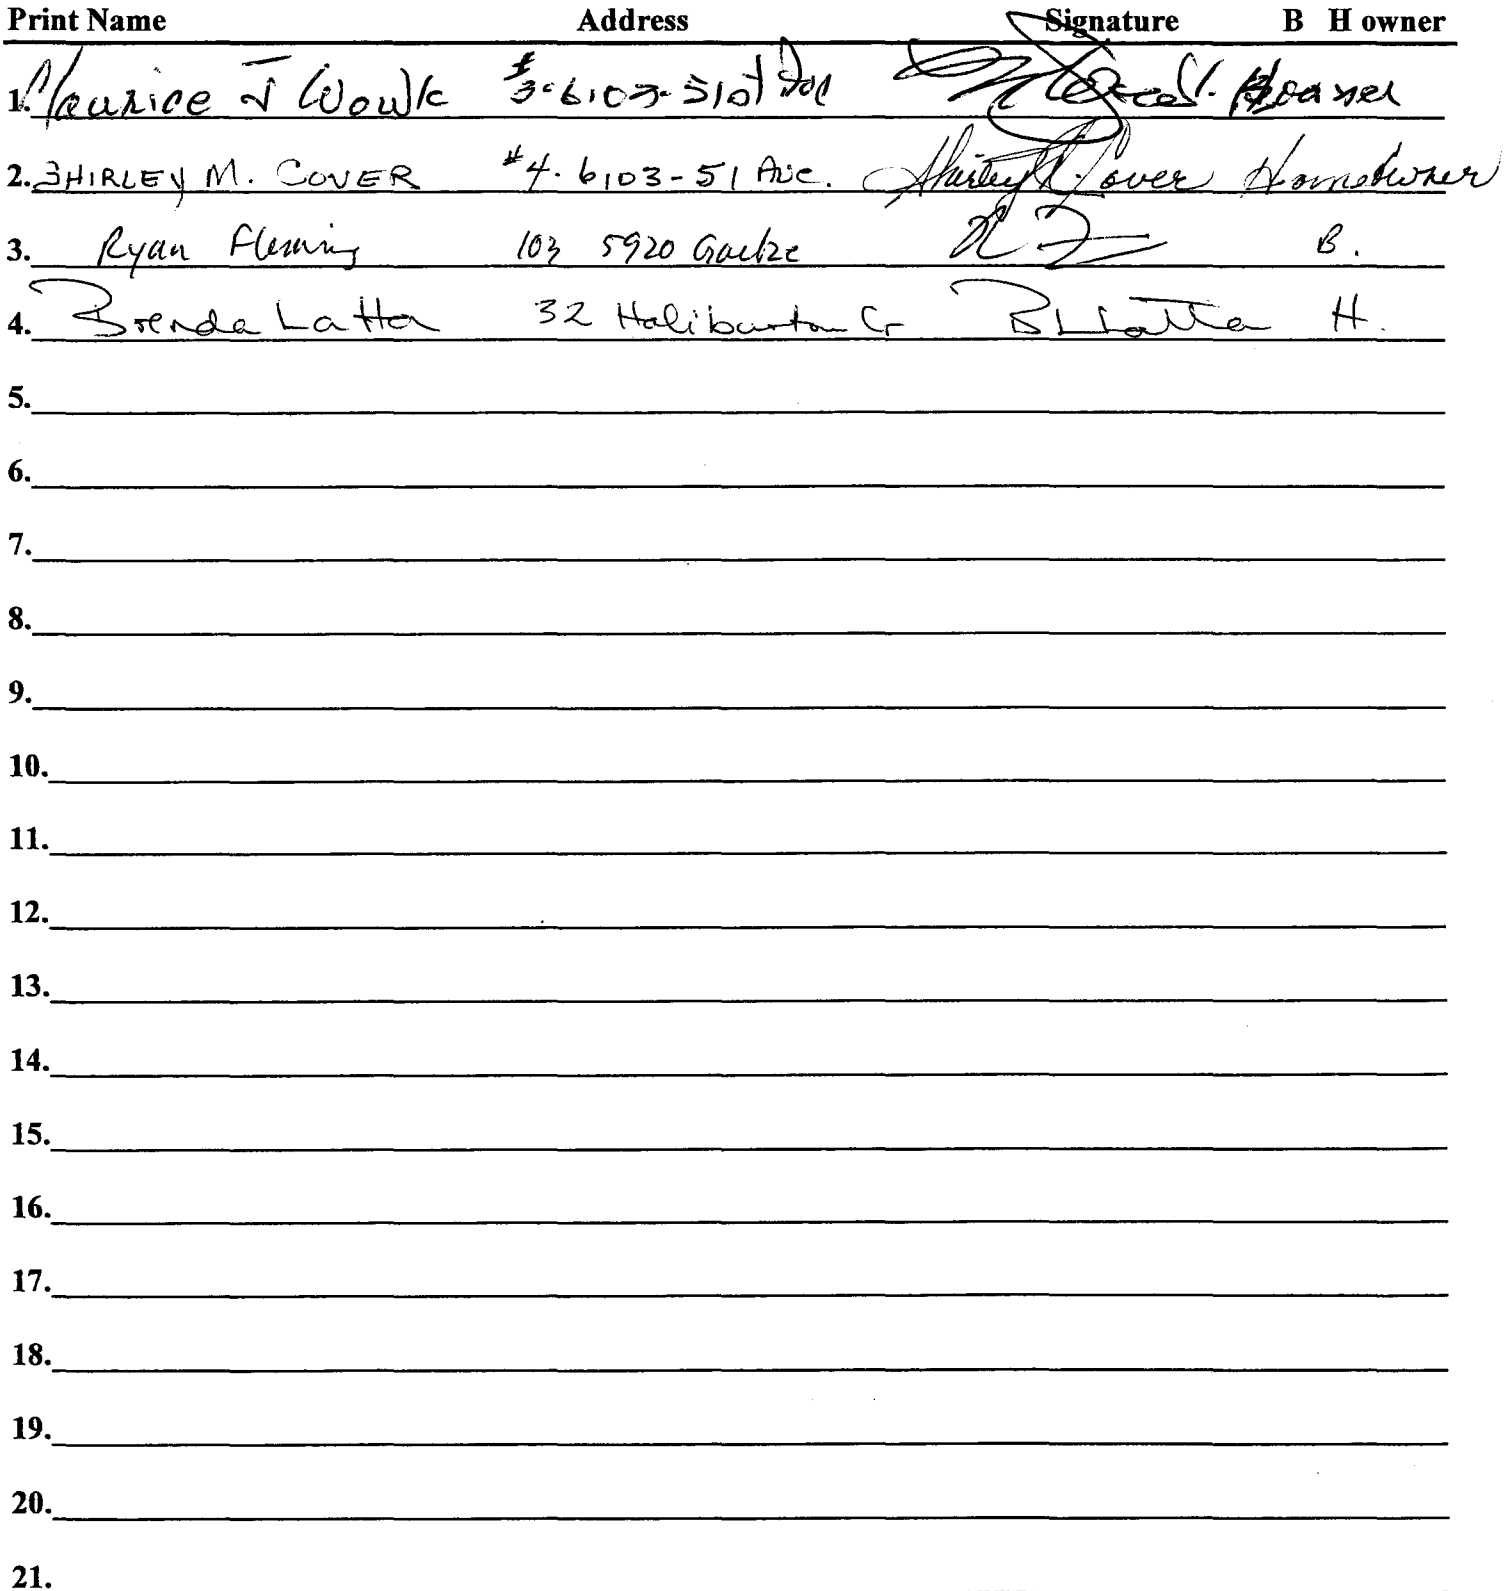 Print Name Address Signature B H owner
1. Maurice J Wowk #3-6103-51 Ave
2. SHIRLEY M. COVER #4. 6103-51 Ave. Shirley M. Cover Homeowner
3. Ryan Fleming 103 5920 Gaetze B.
4. Brenda Latta 32 Haliburton Cr B Latta H.
5.
6.
7.
8.
9.
10.
11.
12.
13.
14.
15.
16.
17.
18.
19.
20.
21.